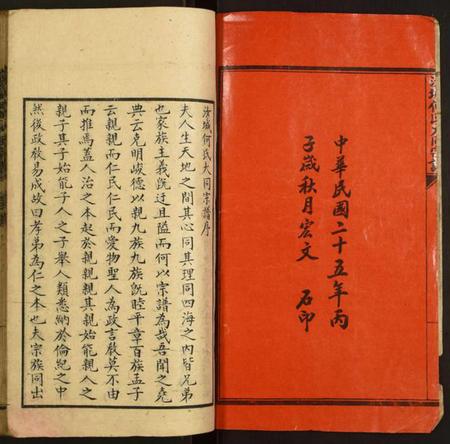 中華民國二十五年丙
子歲秋月宏文 石印
汝城何氏大同宗譜序
夫人生天地之間其心同其理同四海之內皆兄弟
也家族主義旣迂且隘而何以宗譜為哉吾聞之堯
典云克明峻德以親九族九族旣睦平章百族孟子
云親親而仁民仁民而愛物聖人為政言嚴莫不由
而推焉蓋人治之本起於親親其親始能親人之
親子其子始能子人之子舉人類悉納於倫紀之中
然後政教易成故曰孝弟為仁之本也夫宗族同出